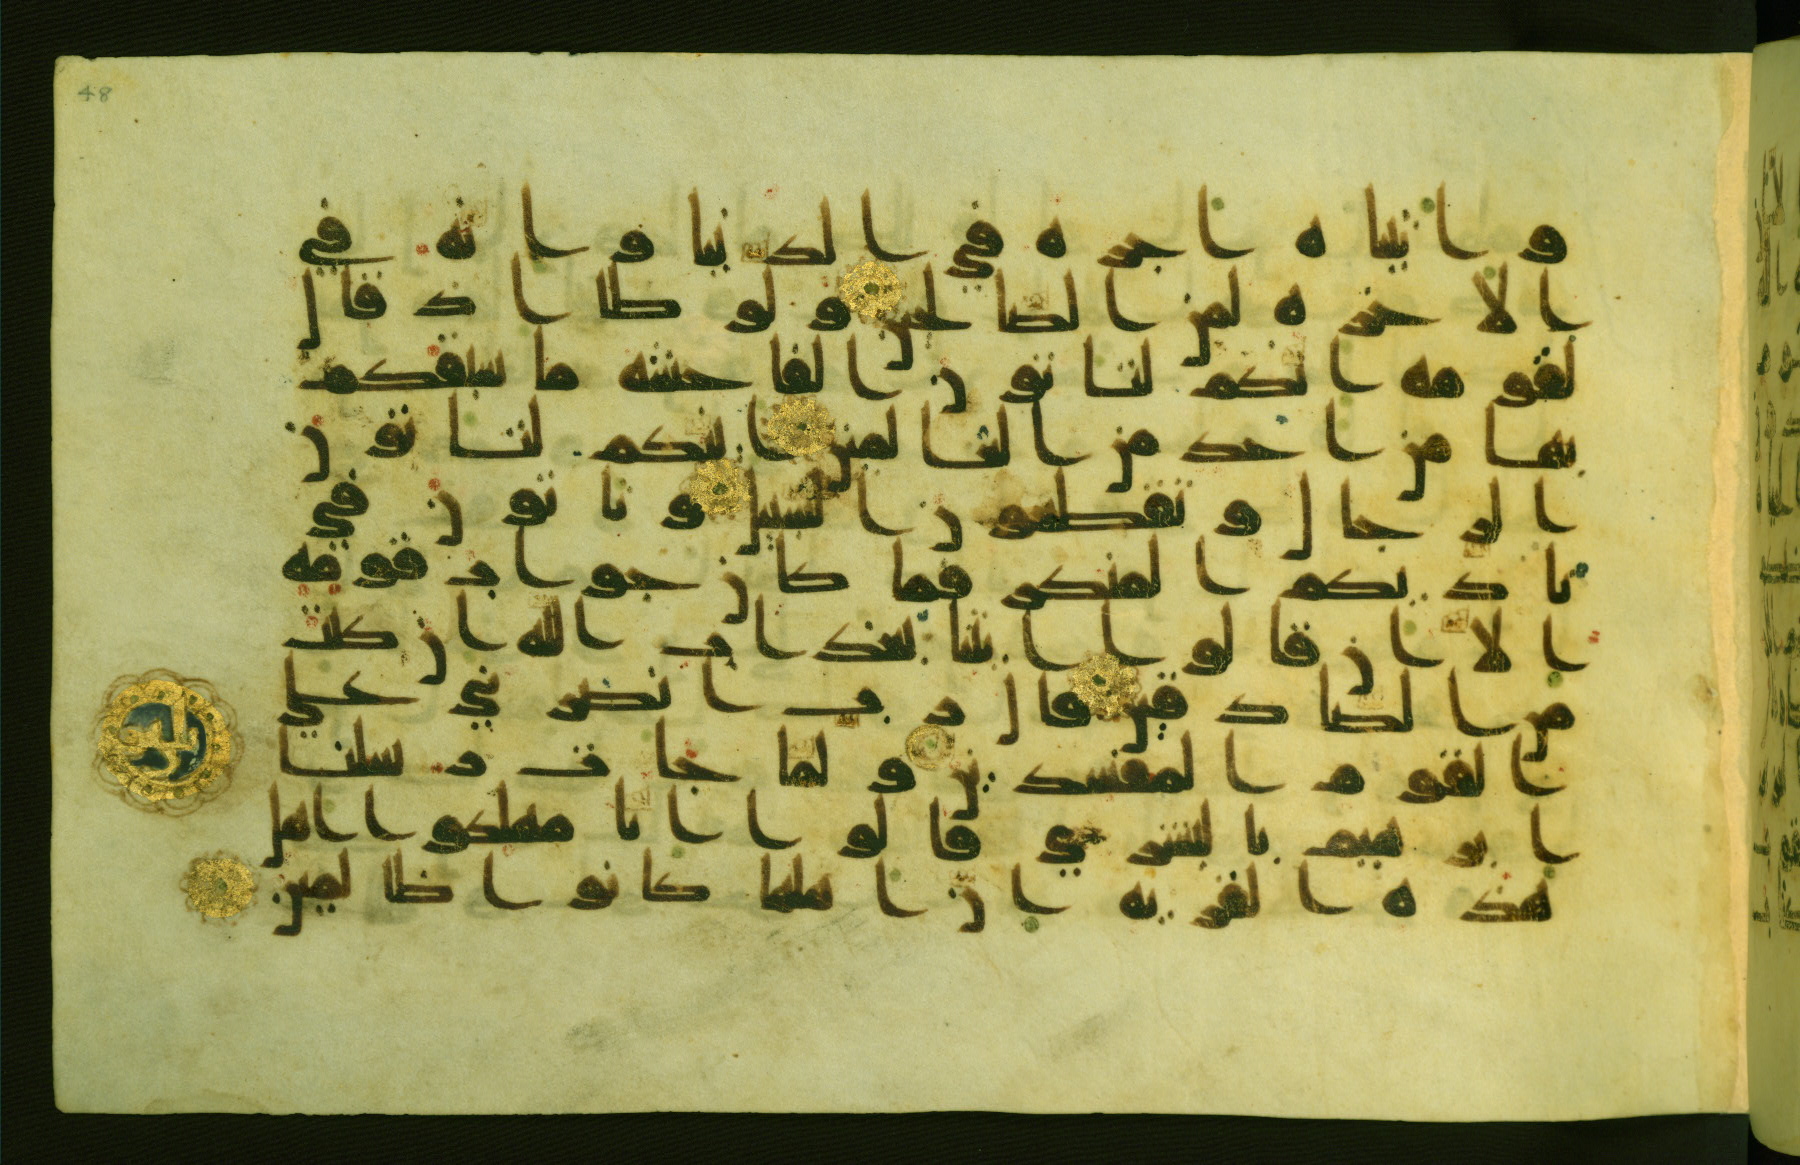 48
واتيناه اجره في الدنيا وانه في
الاخرة لمن الصلحين ولوطا اذ قال
لقومه انكم لتاتون الفاحشة ما سبقكم
بها من احد من العلمين اينكم لتاتون
الرجال وتقطعون السبيل وتاتون في
ناديكم المنكر فما كان جواب قومه
الا ان قالوا ائتنا بعذاب الله ان كنت
من الصادقين قال رب انصرني على
القوم المفسدين ولما جات رسلنا
ابرهيم بالبشرى قالوا انا مهلكوا اهل
هذه القرية ان اهلها كانوا ظالمين